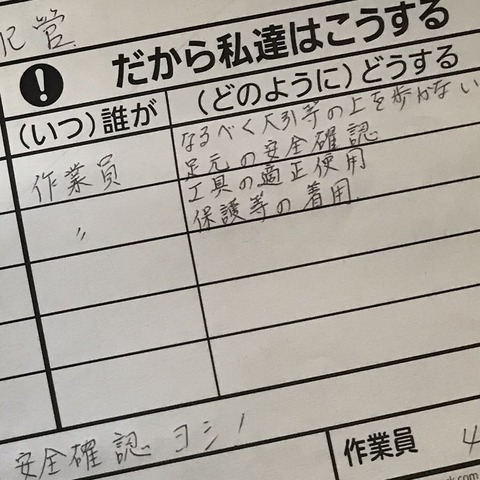 配管
! だから私達はこうする
(いつ)誰が (どのように)どうする
作業員 なるべく大引等の上を歩かない
足元の安全確認
〃 工具の適正使用
保護等の着用
安全確認 ヨシ!
作業員 4
k.com